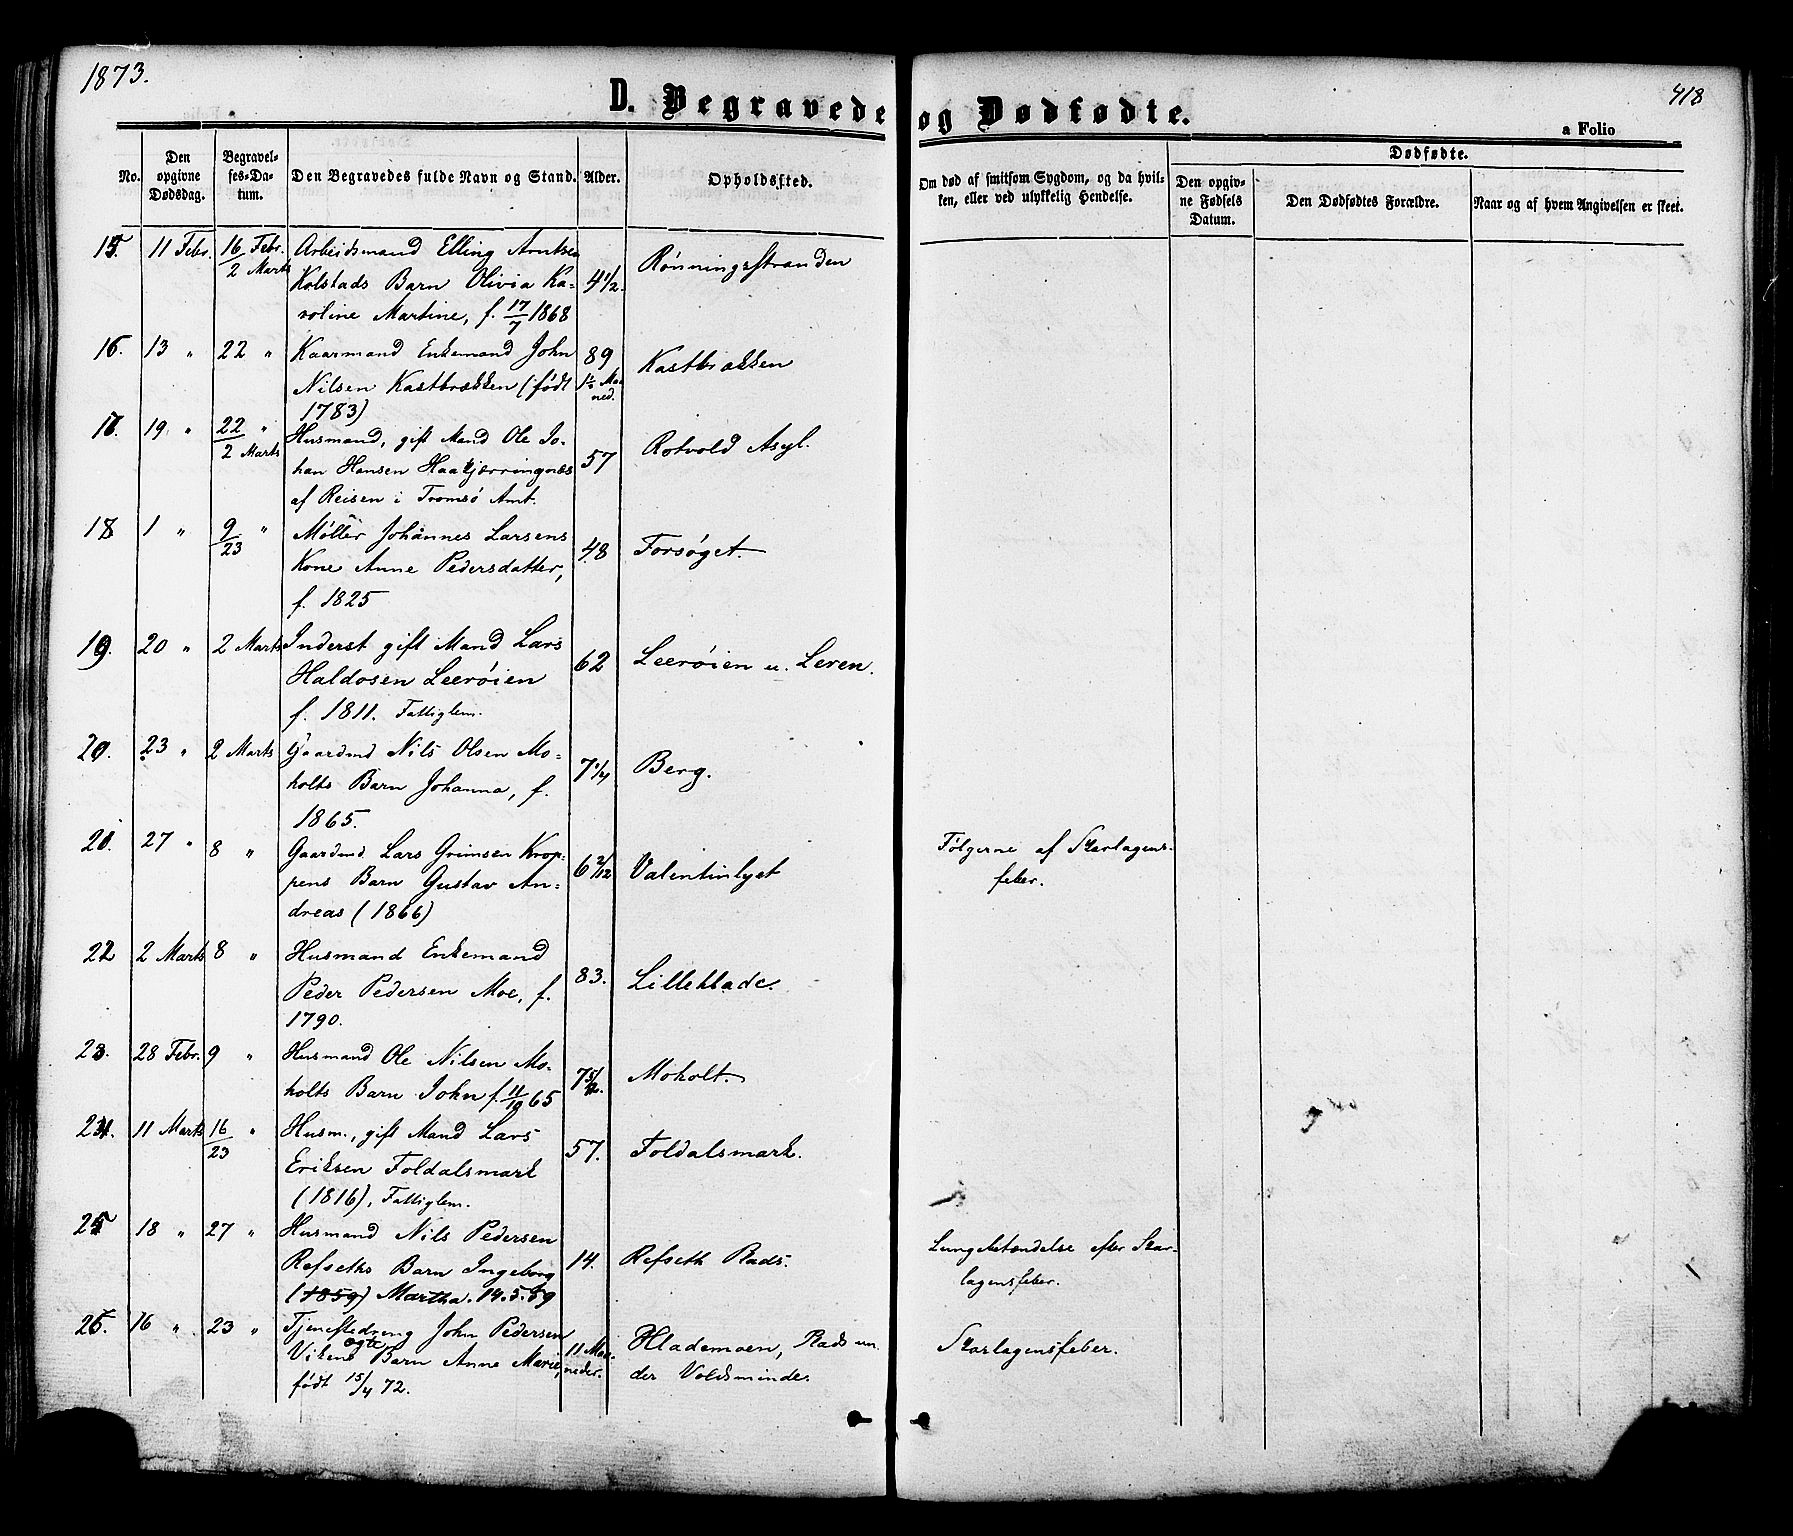 1873.
418
D. Begravede og Dødfødte.
a Folio
No.
Den opgivne Dødsdag.
Begravelses-Datum.
Den Begravedes fulde Navn og Stand.
Alder.
Opholdssted.
Om død af smitsom Sygdom, og da hvilken, eller ved ulykkelig Hendelse.
Dødfødte.
Den opgivne Fødsels Datum.
Den Dødfødtes Forældre.
Naar og af hvem Angivelsen er skeet.
15. 11 Febr. 16 Febr. / 2 Marts Arbeidsmand Elling Arntsen
Kolstads Barn Olivia Ka-
roline Martine, f. 17/7 1868
4 1/2. Rønningsstranden
16. 13 " 22 " Kaarmand Enkemand John
Nilsen Kastbrækken (født
1783)
89 Kastbrækken
17. 19 " 22 " / 2 Marts Husmand, gift Mand Ole Jo-
han Hansen Haakjærringnæs
af Reisen i Tromsø Amt.
57 Rotvold Asyl.
18 1 " 9/23 " Møller Johannes Larsens
Kone Anne Pedersdatter,
f. 1825
48 Forsøget.
19. 20 " 2 Marts Inderst gift Mand Lars
Haldosen Leerøien
f. 1811. Fattiglem.
62 Leerøien u. Leren.
20. 23 " 2 Marts Gaardmd Nils Olsen Mo-
holts Barn Johanna, f.
1865.
7 1/4 Berg.
21. 27 " 8 " Gaardmd. Lars Grimsen Krop-
pens Barn Gustav An-
dreas (1866)
6 2/12 Valentinlyst
Følgerne af Skarlagens-
feber.
22 2 Marts 8 " Husmand Enkemand
Peder Pedersen Moe, f.
1790.
83. Lillehlade.
23. 28 Febr. 9 " Husmand Ole Nilsen Mo-
holts Barn John f. 11/10 65
7 5/12. Moholt.
24. 11 Marts 16/23 " Husm., gift Mand Lars
Eriksen Foldalsmark
(1816), Fattiglem.
57. Foldalsmark.
25 18 " 27 " Husmand Nils Pedersen
Refseths Barn Ingeborg
(1859) Martha. 14.5.59
14. Refseth Plads.
Lungebetændelse efter Skar-
lagensfeber.
26. 16 " 23 " Tjenestedreng John Pedersen
Vikens ægte Barn Anne Marie,
født 15/4 72.
11 Maa-
neder.
Hlademoen, Plads un-
der Voldsminde.
Skarlagensfeber.